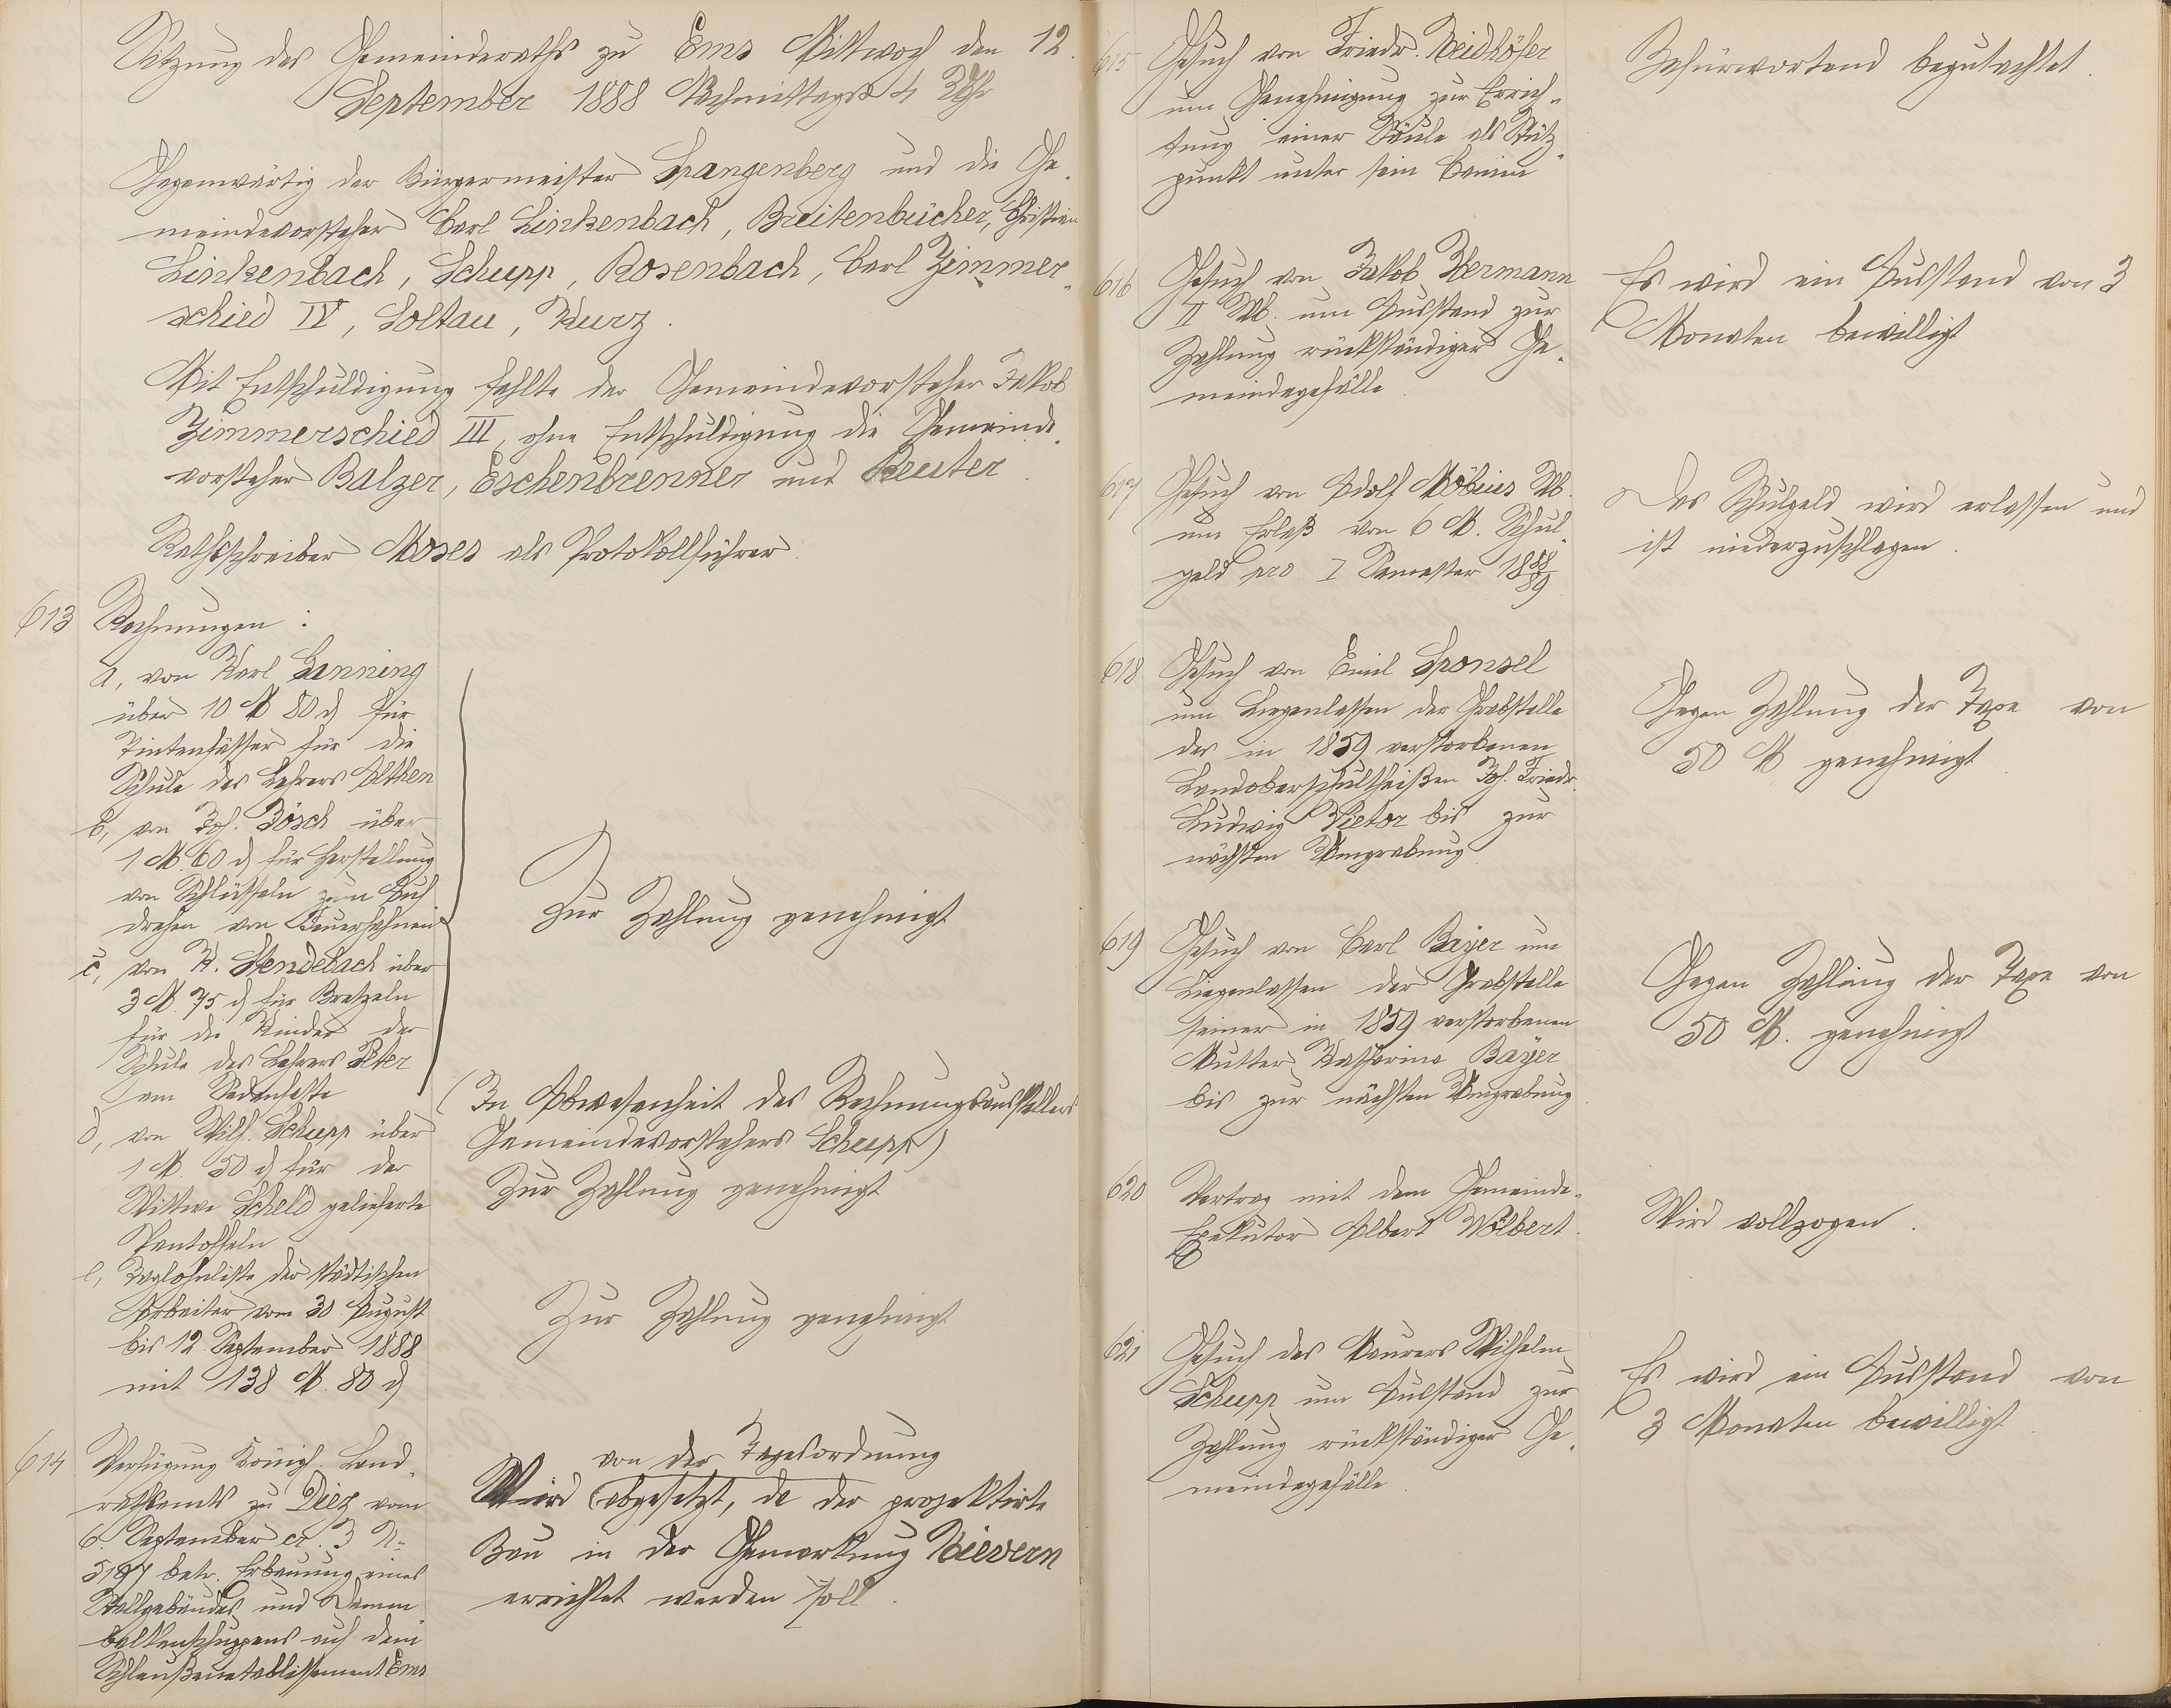 Sitzung des Gemeinderaths zu Ems Mittwoch den 12.
September 1888 Nachmittags 4 Uhr
Gegenwärtig der Bürgermeister Spangenberg und die Ge-
meindevorsteher Carl Linkenbach, Breitenbücher, Christian
Linkenbach, Schupp, Rosenbach, Carl Zimmer-
schied IV, Soltau, Kurz.
Mit Entschuldigung fehlte der Gemeindevorsteher Jakob
Zimmerschied III, ohne Entschuldigung die Gemeinde-
vorsteher Balzer, Eschenbrenner und Reuter.
Rathschreiber Moses als Protokollführer.
613 Rechnungen:
a, von Karl Ganning
über 10 M 80 d für
Tintenfässer für die
Schule des Lehrers Althen
b, von Joh. Bösch über
1 M. 60 d für Herstellung
von Schlüsseln zum Auf
drehen von Feuerhahnen
c, von K. Stendebach über
3 M. 75 d für Bretzeln
für die Kinder der
Schule des Lehrers Peter
am Sedanfeste
Zur Zahlung genehmigt
d, von Wilh. Schupp über
1 M. 50 d für der
Wittwe Scheld gelieferte
Pantoffeln
(In Abwesenheit des Rechnungsausstellers
Gemeindevorstehers Schupp)
Zur Zahlung genehmigt
e, Taglohnliste der städtischen
Arbeiter vom 30 August
bis 12. September 1888
mit 138 M. 80 d
Zur Zahlung genehmigt
614 Verfügung Königl. Land-
rathsamts zu Diez vom
6. September cr. J N=
5187 betr. Erbauung eines
Stallgebäudes und Damm
balkenschuppens auf dem
Schleußenetablissement Ems
von der Tagesordnung
Wird abgesetzt, da der projektirte
Bau in der Gemarkung Nievern
errichtet werden soll.
615 Gesuch von Friedr. Neidhöfer
um Genehmigung zur Errich-
tung einer Säule als Stütz-
punkt unter sein Kamin
Befürwortend begutachtet.
616 Gesuch von Jakob Hermann
II Wb. um Ausstand zur
Zahlung rückständiger Ge-
meindegefälle.
Es wird ein Ausstand von 3
Monaten bewilligt
617 Gesuch von Adolf Möbus Wb.
um Erlaß von 6 M. Schul-
geld pro I Semester 1888/89
Das Schulgeld wird erlassen und
ist niederzuschlagen.
618 Gesuch von Emil Sponsel
um Liegenlassen der Grabstelle
des in 1859 verstorbenen
Landoberschultheißen Joh. Friedr.
Ludwig Vietor bis zur
nächsten Umgrabung
Gegen Zahlung der Taxe von
50 M genehmigt
619 Gesuch von Carl Bayer um
Liegenlassen der Grabstelle
seiner in 1859 verstorbenen
Mutter Katharina Bayer
bis zur nächsten Umgrabung.
Gegen Zahlung der Taxe von
50 M. genehmigt
620 Vertrag mit dem Gemeinde-
Exekutor Albert Wolbert.
Wird vollzogen.
621 Gesuch des Maurers Wilhelm
Schupp um Ausstand zur
Zahlung rückständiger Ge-
meindegefälle.
Es wird ein Ausstand von
3 Monaten bewilligt